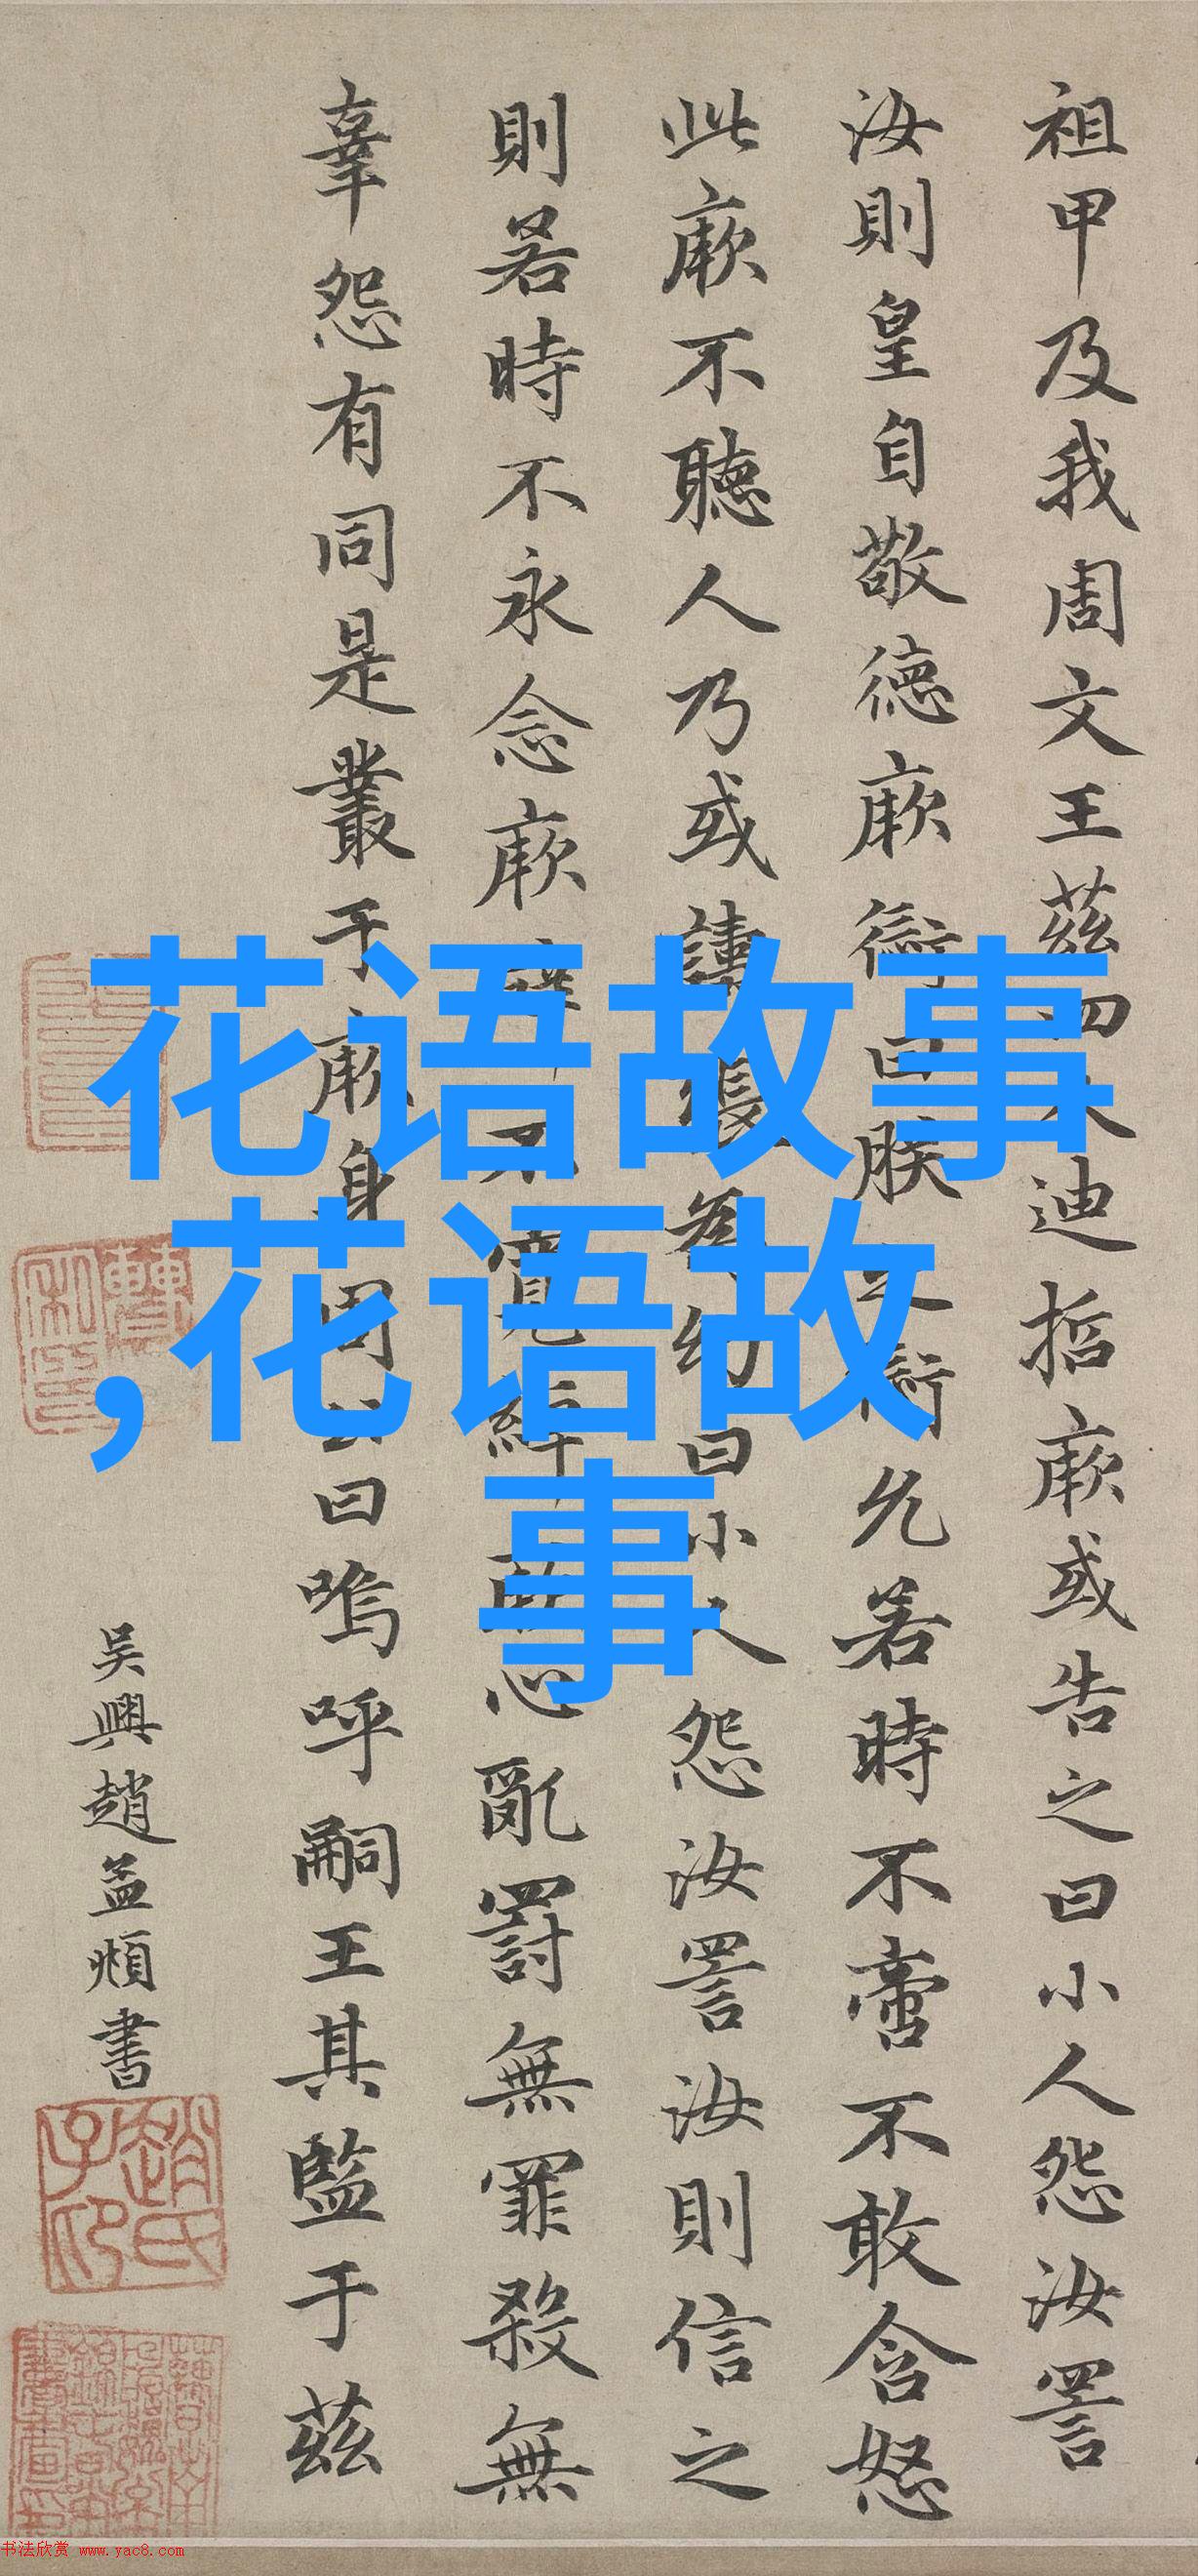 祖甲及我周文王茲四人迪哲厥或告之曰小人怨汝詈
汝則皇自敬德厥愆曰朕之愆允若時不啻不敢含怒
此厥不聽人乃或譸張為幻曰小人怨汝詈汝則信之
則若時不永念厥辟不寬綽厥心亂罰無罪殺無
辜怨有同是叢于厥身周公曰嗚呼嗣王其監于茲
吴興趙孟頫書
趙氏子昂
花语故事
,花语故
事
书法欣赏 www.yac8.com